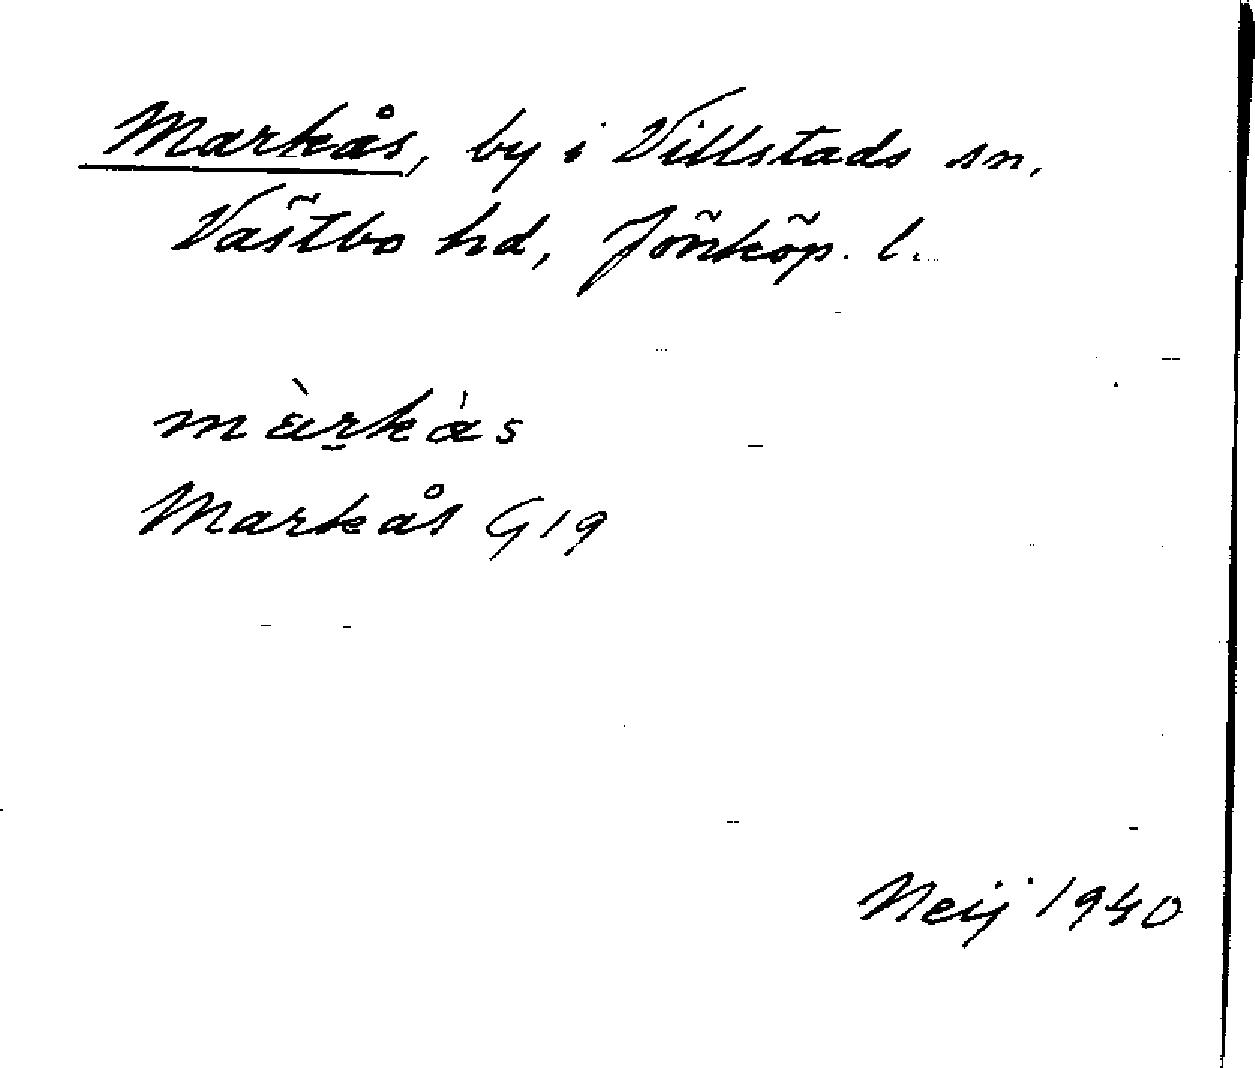 Markås, by i Villstads sn,
Västbo hd, Jönköp. l.
màrkás
Markås G19
Neij 1940